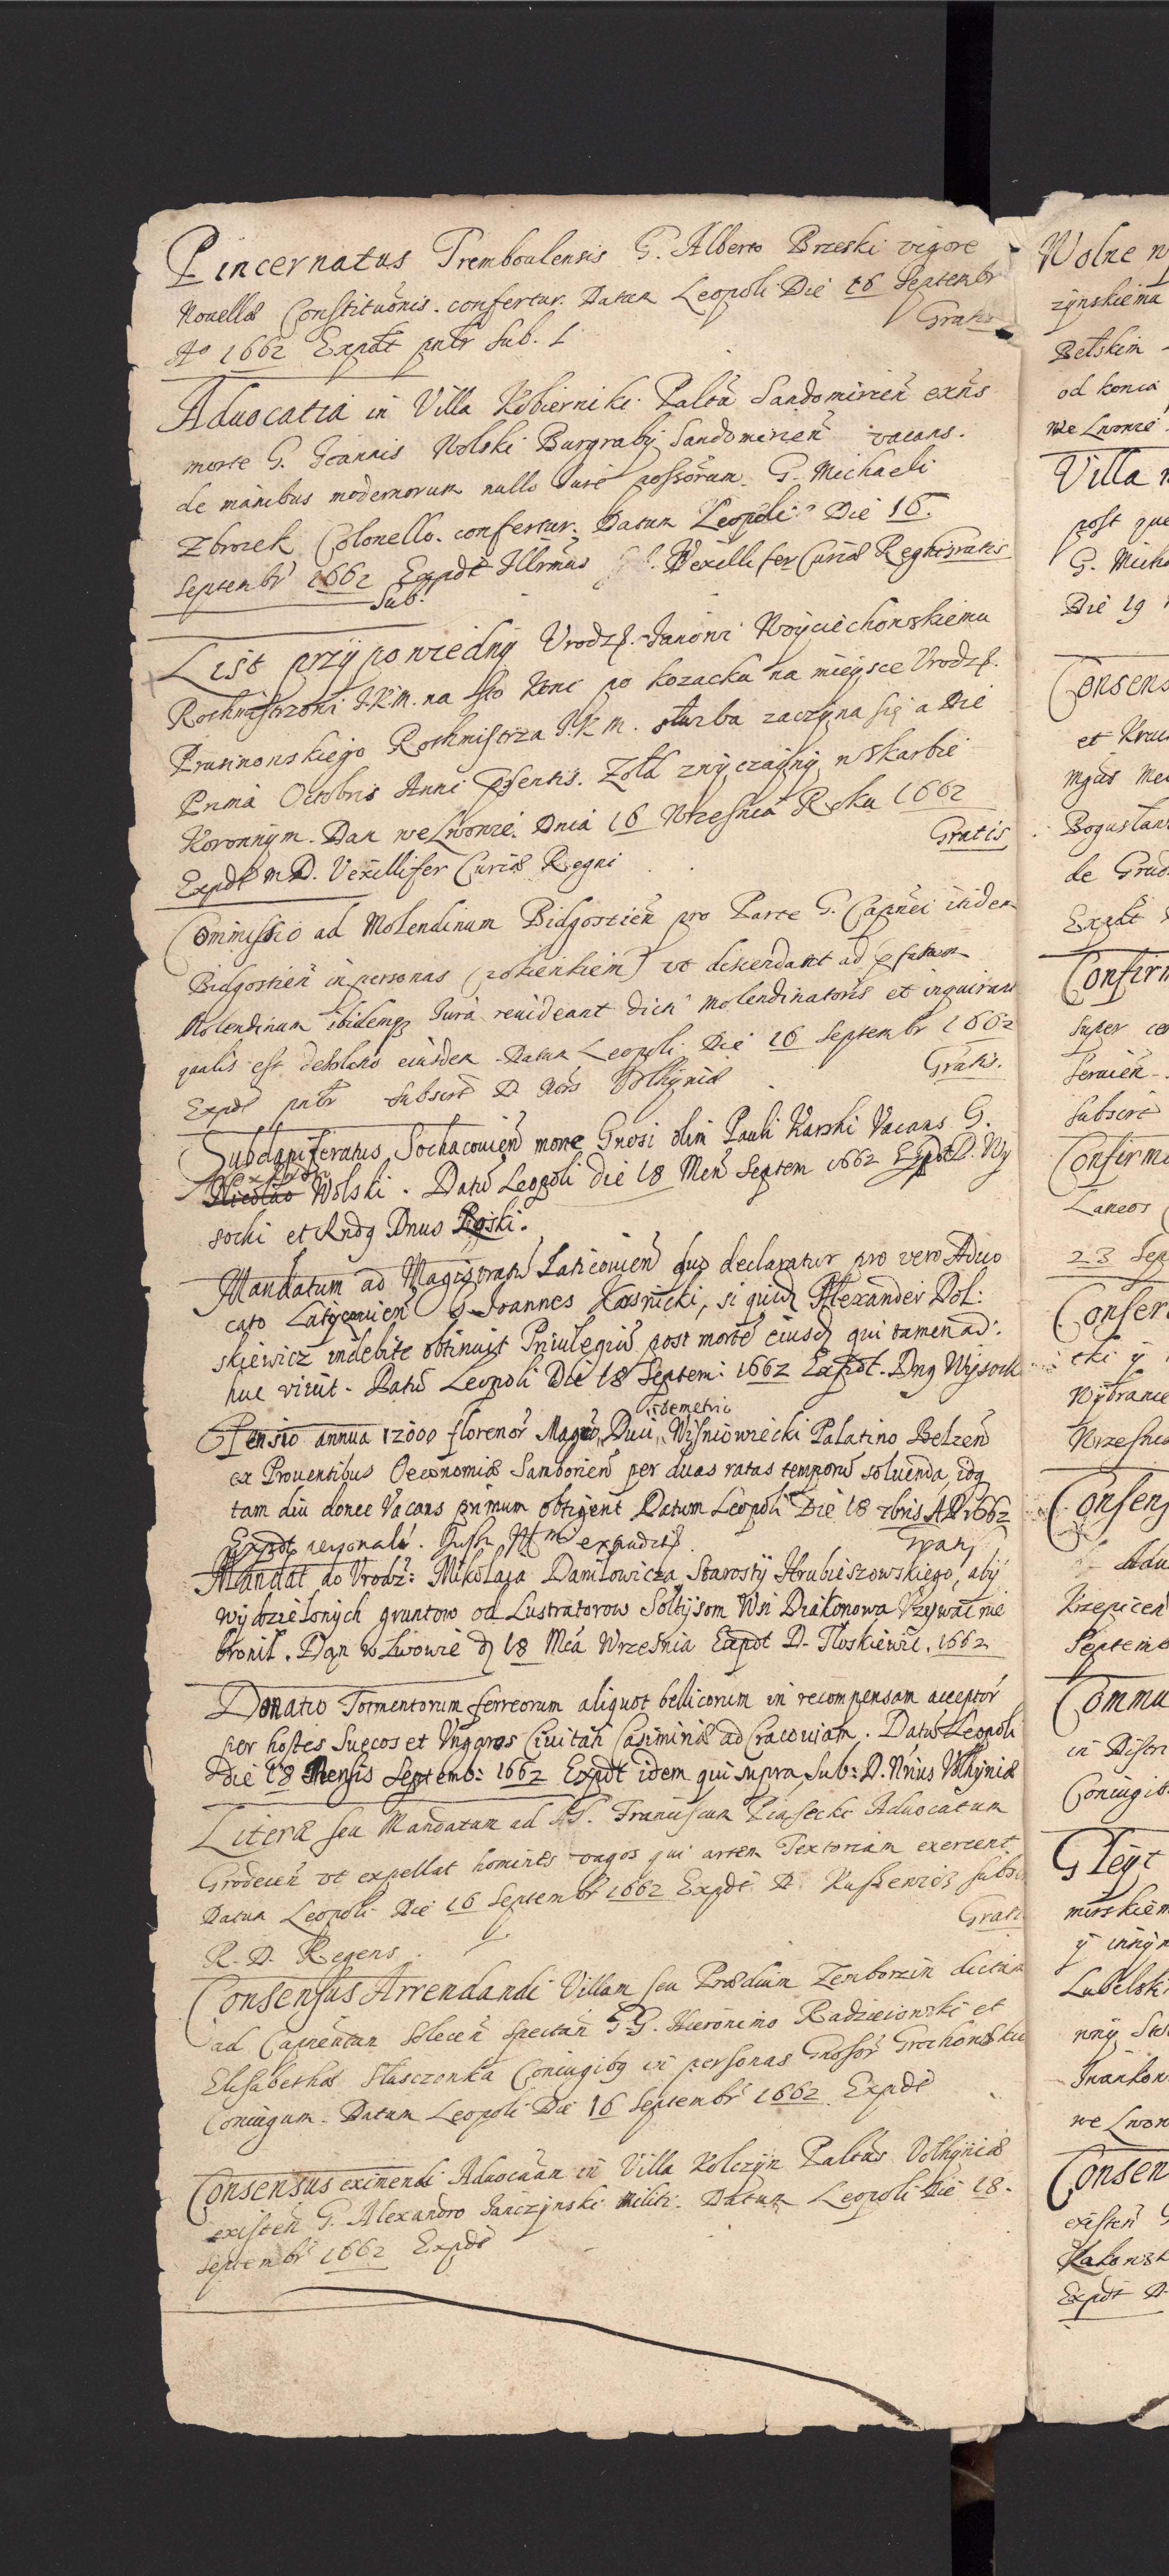 Pincernatus Tremboulensis G. Alberto Brzeski vigore
Nouellæ Constituõnis. confertur. Datum Leopoli Die 16 Septembr
Aº 1662 Expdt pntr Sub. L Gratis
Aduocatia in Villa Kobierniki Paltũ Sandomirieñ exñs
morte G. Joannis Wolski Burgrabÿ Sandomirieñ vacans.
de manibus modernorum nullo Jure possõrum. G. Michaeli
Zbrozek Colonello. confertur. Datum Leopoli Die 16.
Septembr 1662 Expdt Illrmus Vexillifer Curiæ Regni Gratis
Sub.
List przÿpowiednÿ Vrodz. Janowi Woÿciechowskiemu
Rothmistrzowi J.K.M. na sto koni po kozacku na mieÿsce Vrodz.
Prusinowskiego Rothmistrza J.K.M. służba zaczÿna się a Die
Prima Octobris Anni Pñsentis. Zołd zwÿczaÿnÿ w skarbie
Koronnÿm. Dan we Lwowie. Dnia 16 Wrzesnia Roku 1662
Expdt M.D. Vexillifer Curiæ Regni Gratis
Commissio ad Molendinum Bidgostieñ pro Parte G. Capñei itidem
Bidgostieñ in personas vt descendant ad
Molendinum ibidemq Jura reuideant dicti Molendinatoris et inquirant
qualis est desolatio eiusdem Datum Leopoli Die 16 Septembr 1662
Expdt pntr Subscrt D. Nors Volhyniæ Gratis.
Subdapiferatus Sochacouieñ morte Gnosi olim Pauli Karski Vacans G.
Nicolao Wolski. Datũ Leopoli die 18 Meñ Septem 1662 Expdt D. Wy
socki et Rndq Dnus Rpski.
Mandatum ad Magistratũ Laticouieñ quo declaratur pro vero Aduo
cato Latycouieñ G Joannes Kasnicki, si quidẽ Alexander Dol:
skiewicz indebite obtinuit Priuilegiũ post mortẽ eiusdẽ qui tamen ad:
huc viuit. Datũ Leopoli Die 18 Septem: 1662 Expdt. Dnq Wÿsock
Demetrio
Pensio annua 12000 florenor̃ Magco Duci Wiśniowiecki Palatino Belzeñ
ex Prouentibus Oeconomiæ Samborieñ per duas ratas temporũ soluenda, idq
tam diu donec Vacans primum obtigerit Datum Leopoli Die 18 7bris AD 1662
Expdt Gratis
Mandat do Vrodz: Mikołaia Daniłowicza Starostÿ Hrubieszowskiego, abÿ
wÿdzielonÿch gruntow od Lustratorow Sołtÿsom Wsi Diakonowa Vzÿwać nie
bronił. Dan w Lwowie d 18 Mca Września Expdt D. Tłoskiewic. 1662
Donatio Tormentorum ferreorum aliquot bellicorum in recompensam acceptor̃
per hostes Suecos et Vngaros Ciuitati Casimiriæ ad Cracouiam. Datũ Leopoli
die 18 Mensis Septemb: 1662 Expdt idem qui supra Sub: D. Nrius Volhÿniæ
Literæ seu Mandatum ad G. Franciscum Piasecki Aduocatum
Grodecen vt expellat homines vagos qui artem Textoriam exercent
Datum Leopoli Die 16 Septembr 1662 Expdt D. Kuszewicz subscr
R. D. Regens Gratis
Consensus Arrendandi Villam seu Prædium Zemborzin dictum
ad Capneatum Soleceñ spectañ GG. Hieronimo Radzieiowski et
Elisabethæ Słasczonka Coniugibq in personas Gnosor̃ Grochowskie
Coniugum. Datum Leopoli Die 16 Septembr 1662 Expdt
Consensus eximendi Aduocãam in Villa Kolczÿn Paltus Volhÿniæ
existeñ G. Alexandro Janczÿnski Militi. Datum Leopoli Die 18.
Septembr 1662 Expdt
Wolne
zÿnskiemu
Bełskim
od konca
we Lwowie
Villa
post
G. Mich
Die 19
Consens
et
Bogusław
de Grud
Expdt
Confirm
super
Subscrt
Confirma
Laneos
23 Sep
Confert
Wÿbrane
Wrzesnia
Consens
Krzepiceñ
Septemb
Commu
in Distri
Coniugib
Gleÿt
ÿ innÿm
Lubelski
we Lwow
Consen
existeñ
Expdt D.